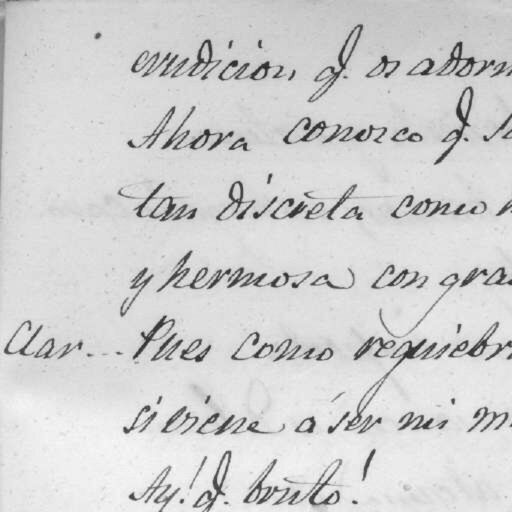 erudicion, q.e os adorn
Ahora conozco q.e s
tan discreta como h
y hermosa con gra
Clar... Pues como requiebr
si viene á ser mi m
Ay! q.e bruto!